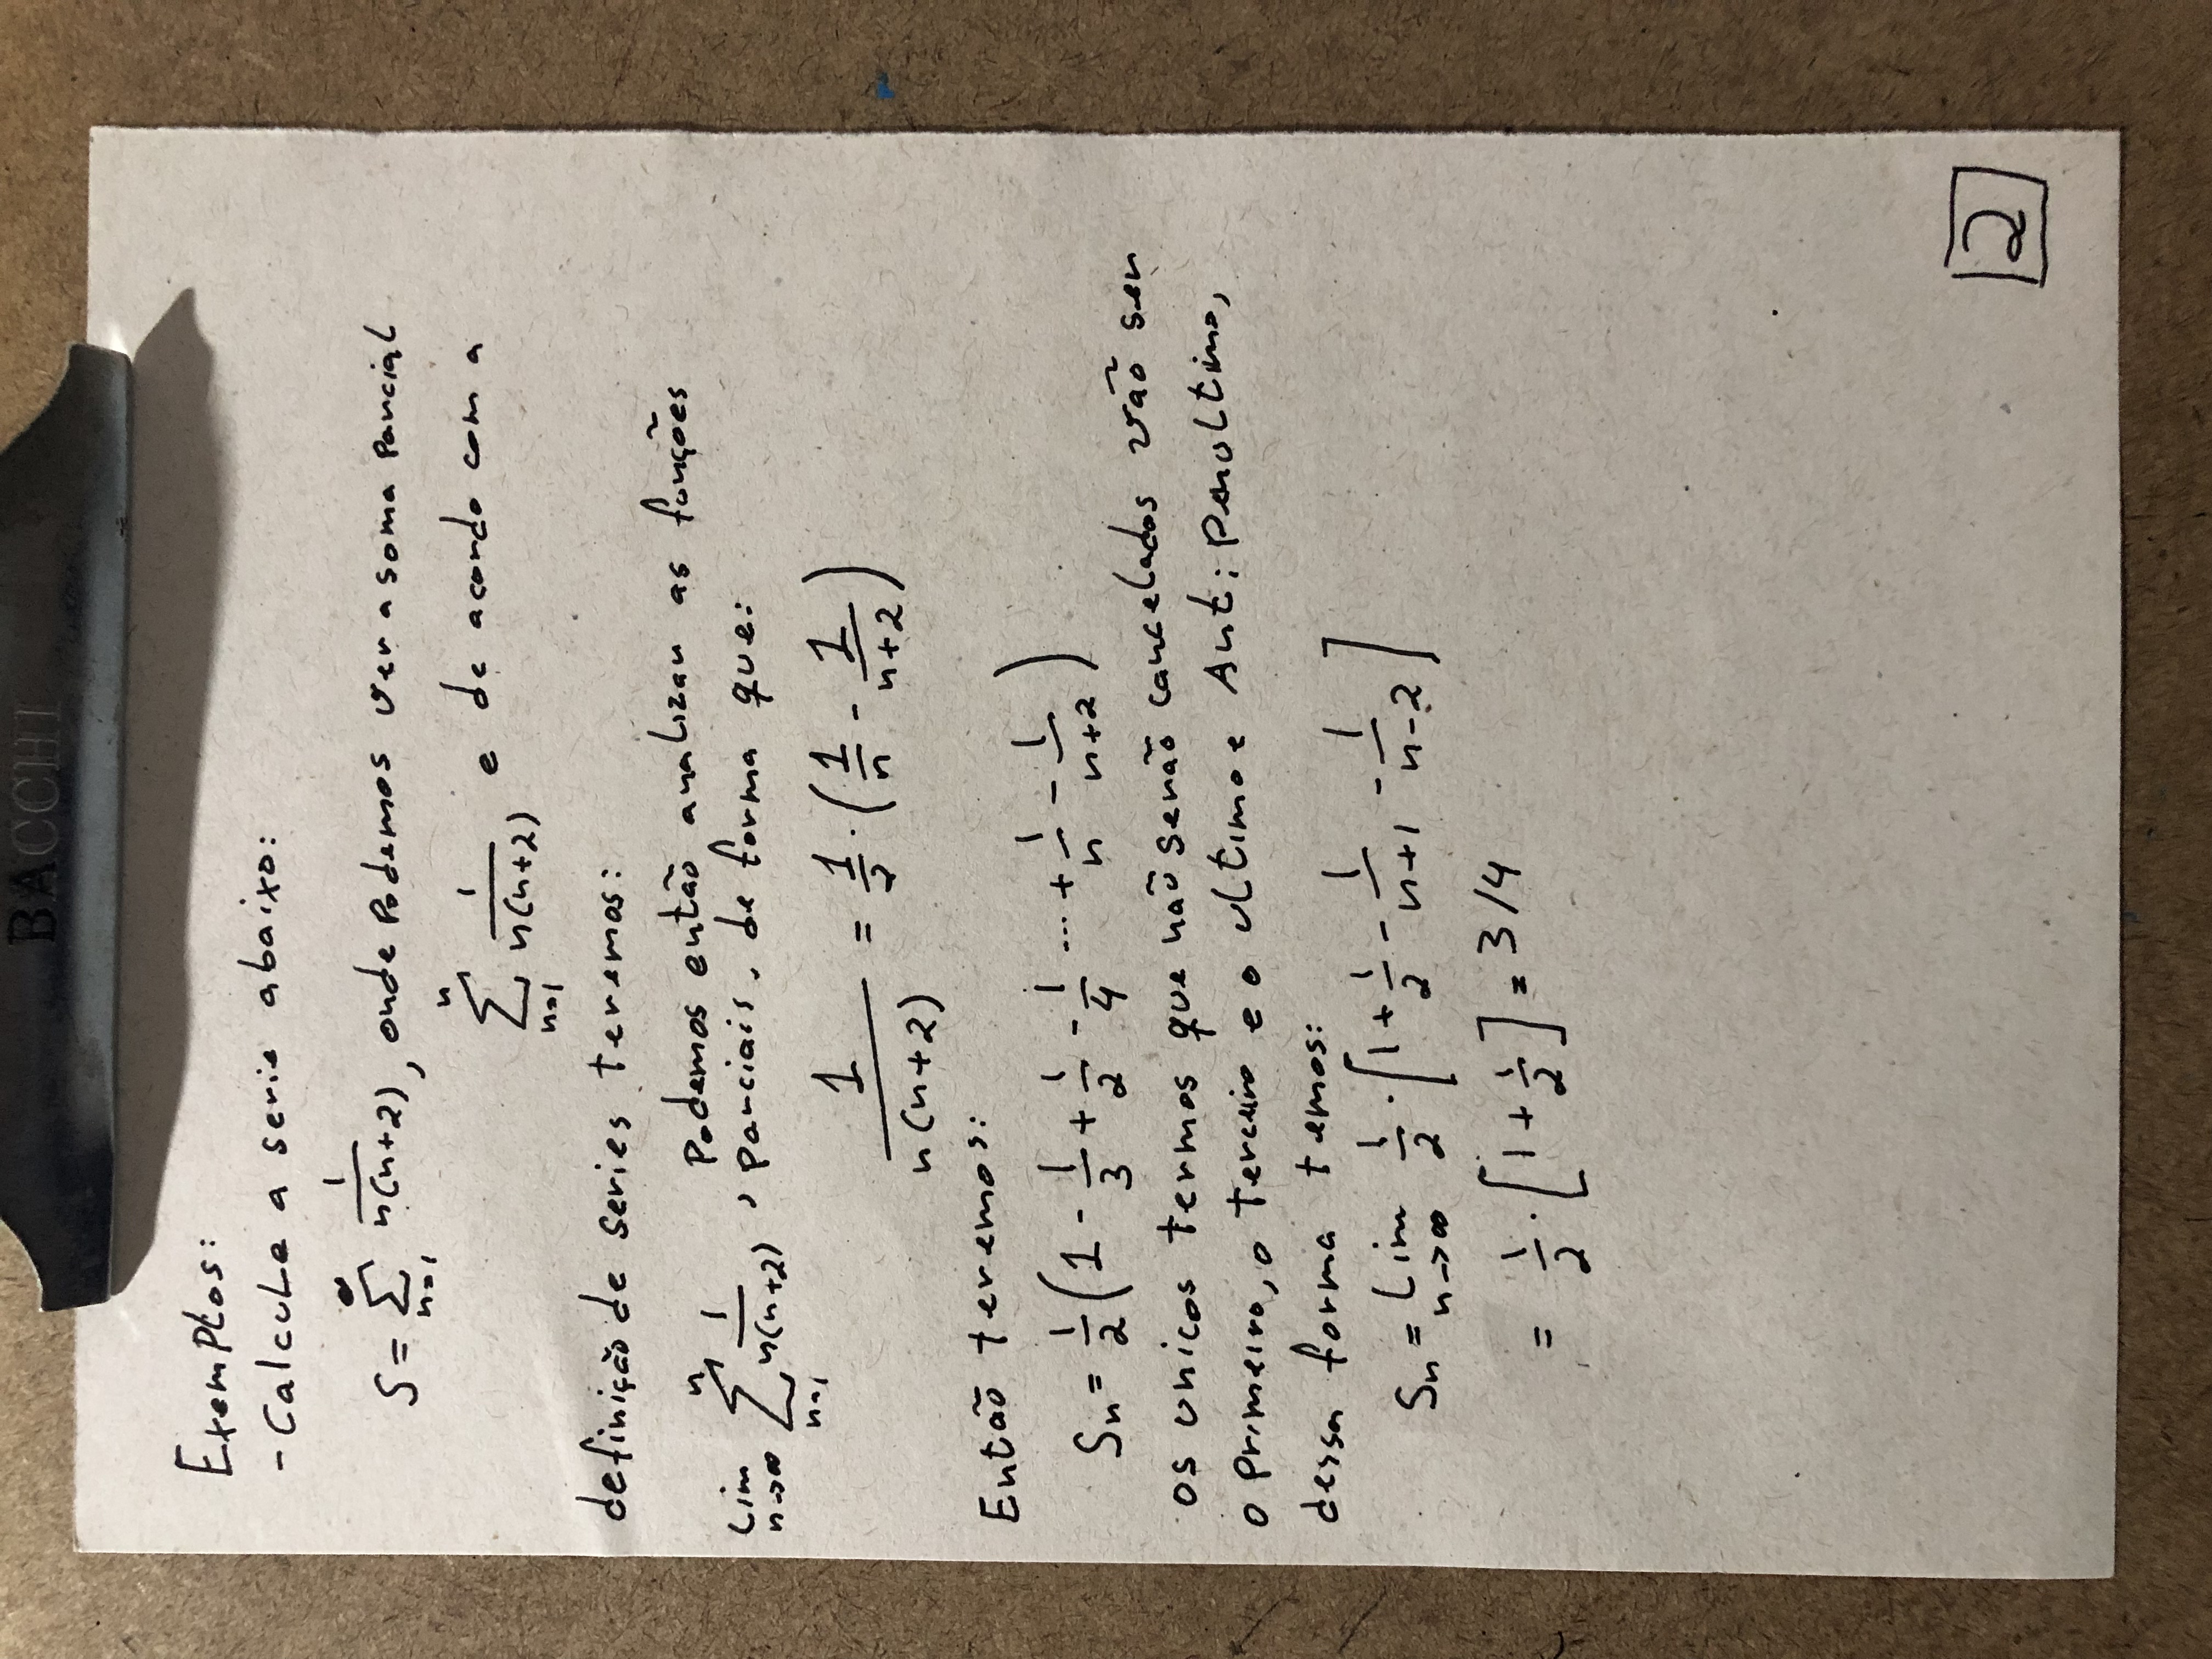 BACCHI
Exemplos:
- Calcule a serie abaixo:
S = ∑_{n=1}^{∞} 1/(n(n+2)), onde Podemos ver a soma parcial
∑_{n=1}^{n} 1/(n(n+2)) e de acordo com a
definição de series teremos:
Podemos então analizar as funções
Lim_{n→∞} ∑_{n=1}^{n} 1/(n(n+2)), parciais, de forma que:
1/(n(n+2)) = 1/2 · (1/n - 1/(n+2))
Então teremos:
Sn = 1/2 (1 - 1/3 + 1/2 - 1/4 ... + 1/n - 1/(n+2))
os unicos termos que não serão cancelados vão ser
o primeiro, o terceiro e o ultimo e Anti penultimo,
dessa forma temos:
Sn = Lim_{n→∞} 1/2 · [1 + 1/2 - 1/(n+1) - 1/(n-2)]
= 1/2 · [1 + 1/2] = 3/4
2